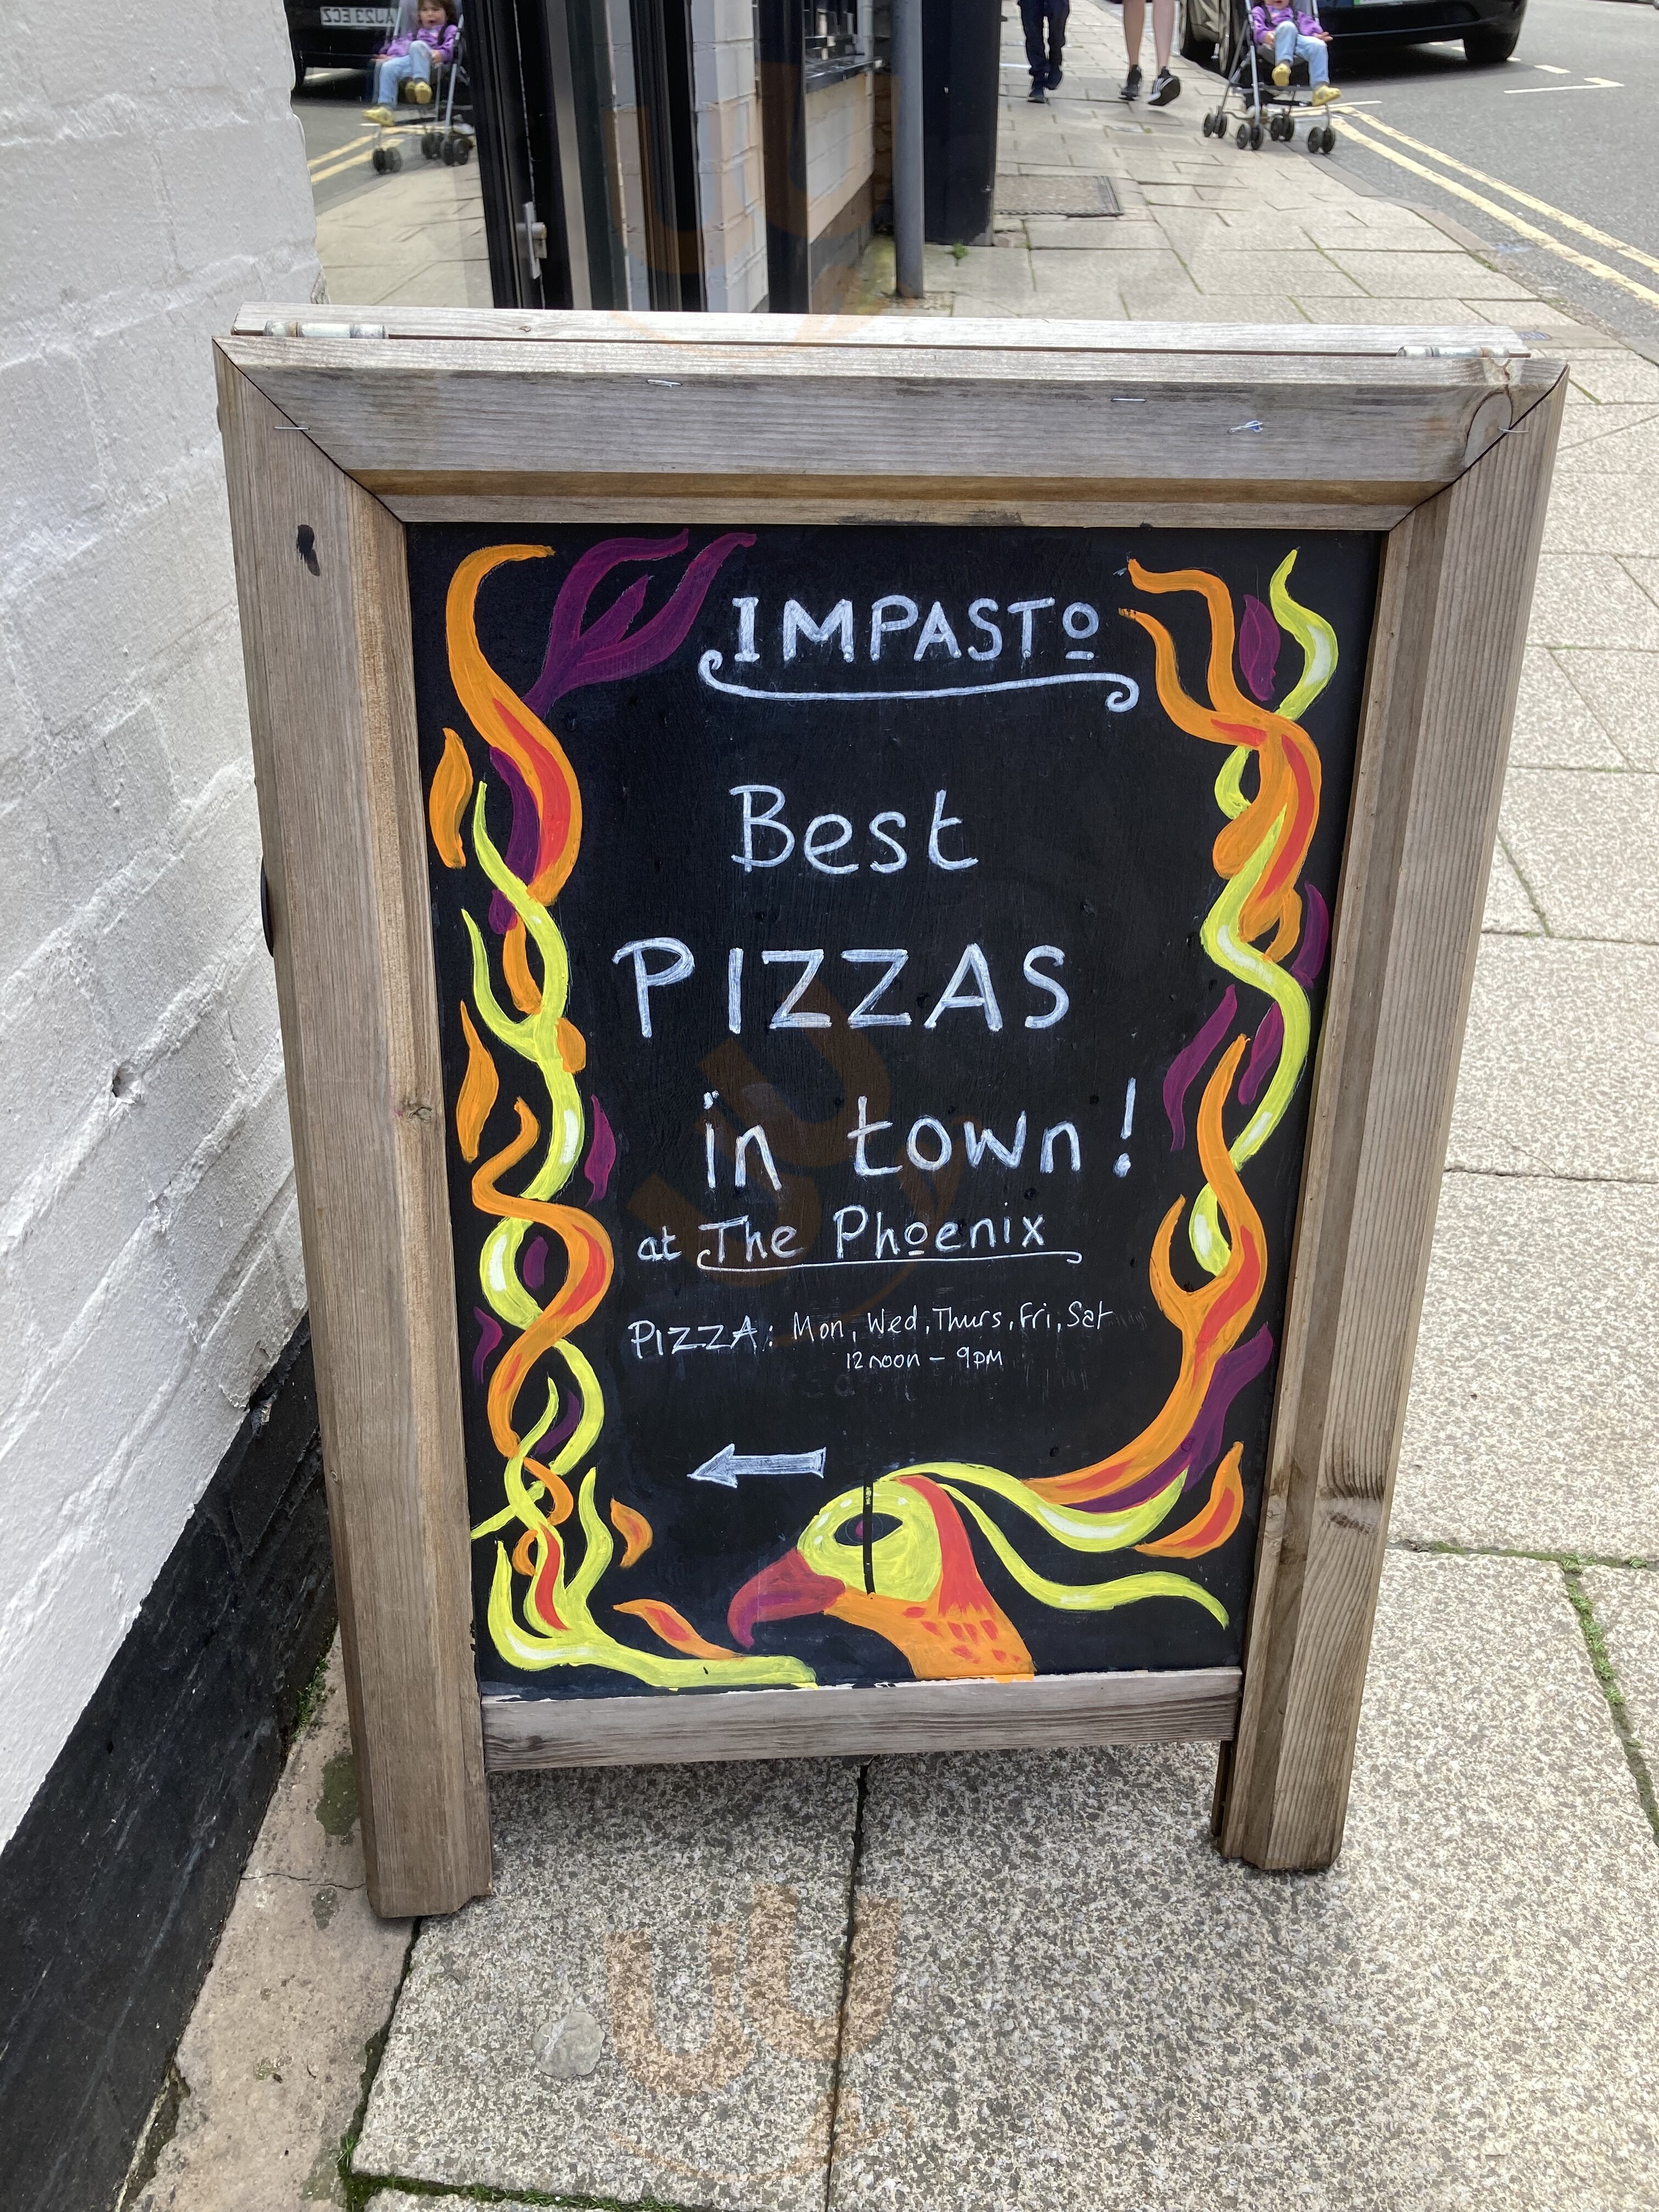 IMPASTO
Best
PIZZAS
in town!
at The Phoenix
PIZZA: Mon, Wed, Thurs, Fri, Sat
12 noon - 9PM